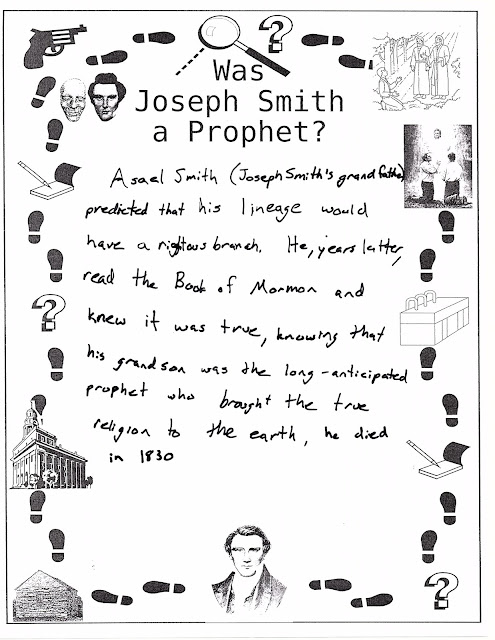 Was
Joseph Smith
a Prophet?
Asael Smith (Joseph Smith's grandfather)
predicted that his lineage would
have a rightous branch. He, years latter,
read the Book of Mormon and
knew it was true, knowing that
his grandson was the long-anticipated
prophet who brought the true
religion to the earth, he died
in 1830